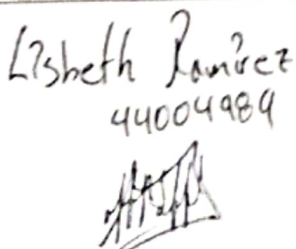 Lisbeth Ramirez
44004984